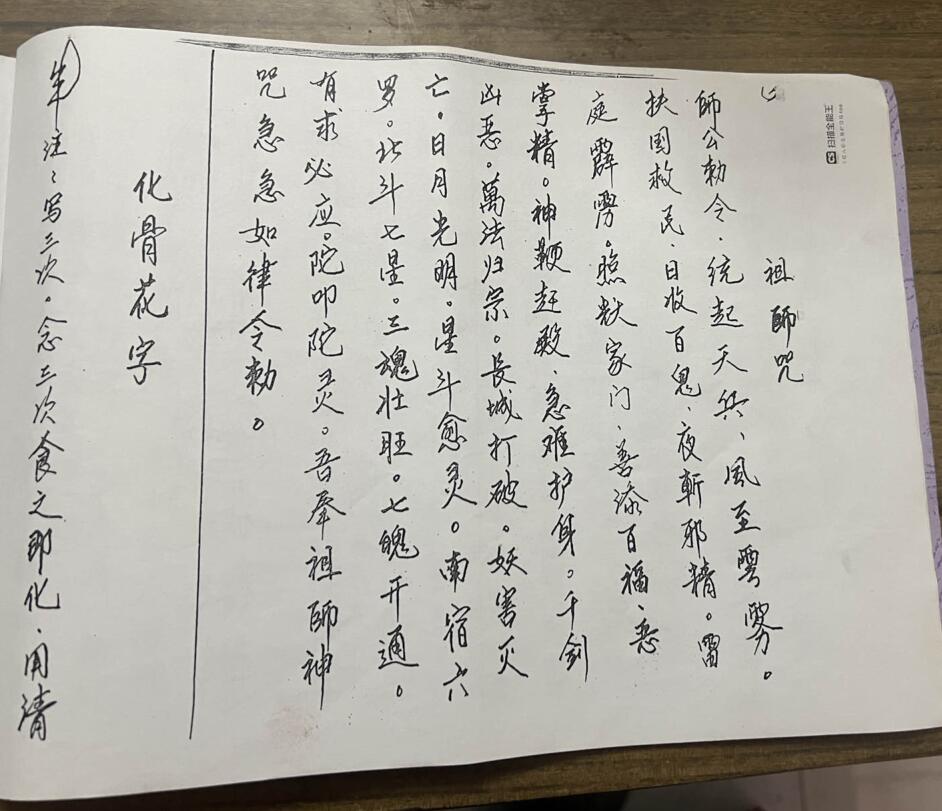 祖師咒
師公勅令、统起天兵、風至雲雾。
扶国救民、日收百鬼、夜斬邪精。雷
庭霹雳。照妖家门、善添百福、恶
掌精。神鞭赶殿、急难护身。千剑
凶恶。萬法归宗。長城打破。妖害灭
亡。日月光明。星斗愈灵。南宿六
罗。北斗七星。三魂壮旺。七魄开通。
有求必应。陀叩陀灵。吾奉祖師神
咒急急如律令勅。
化骨花字
注:写三次。念三次食之即化、用清
扫描全能王